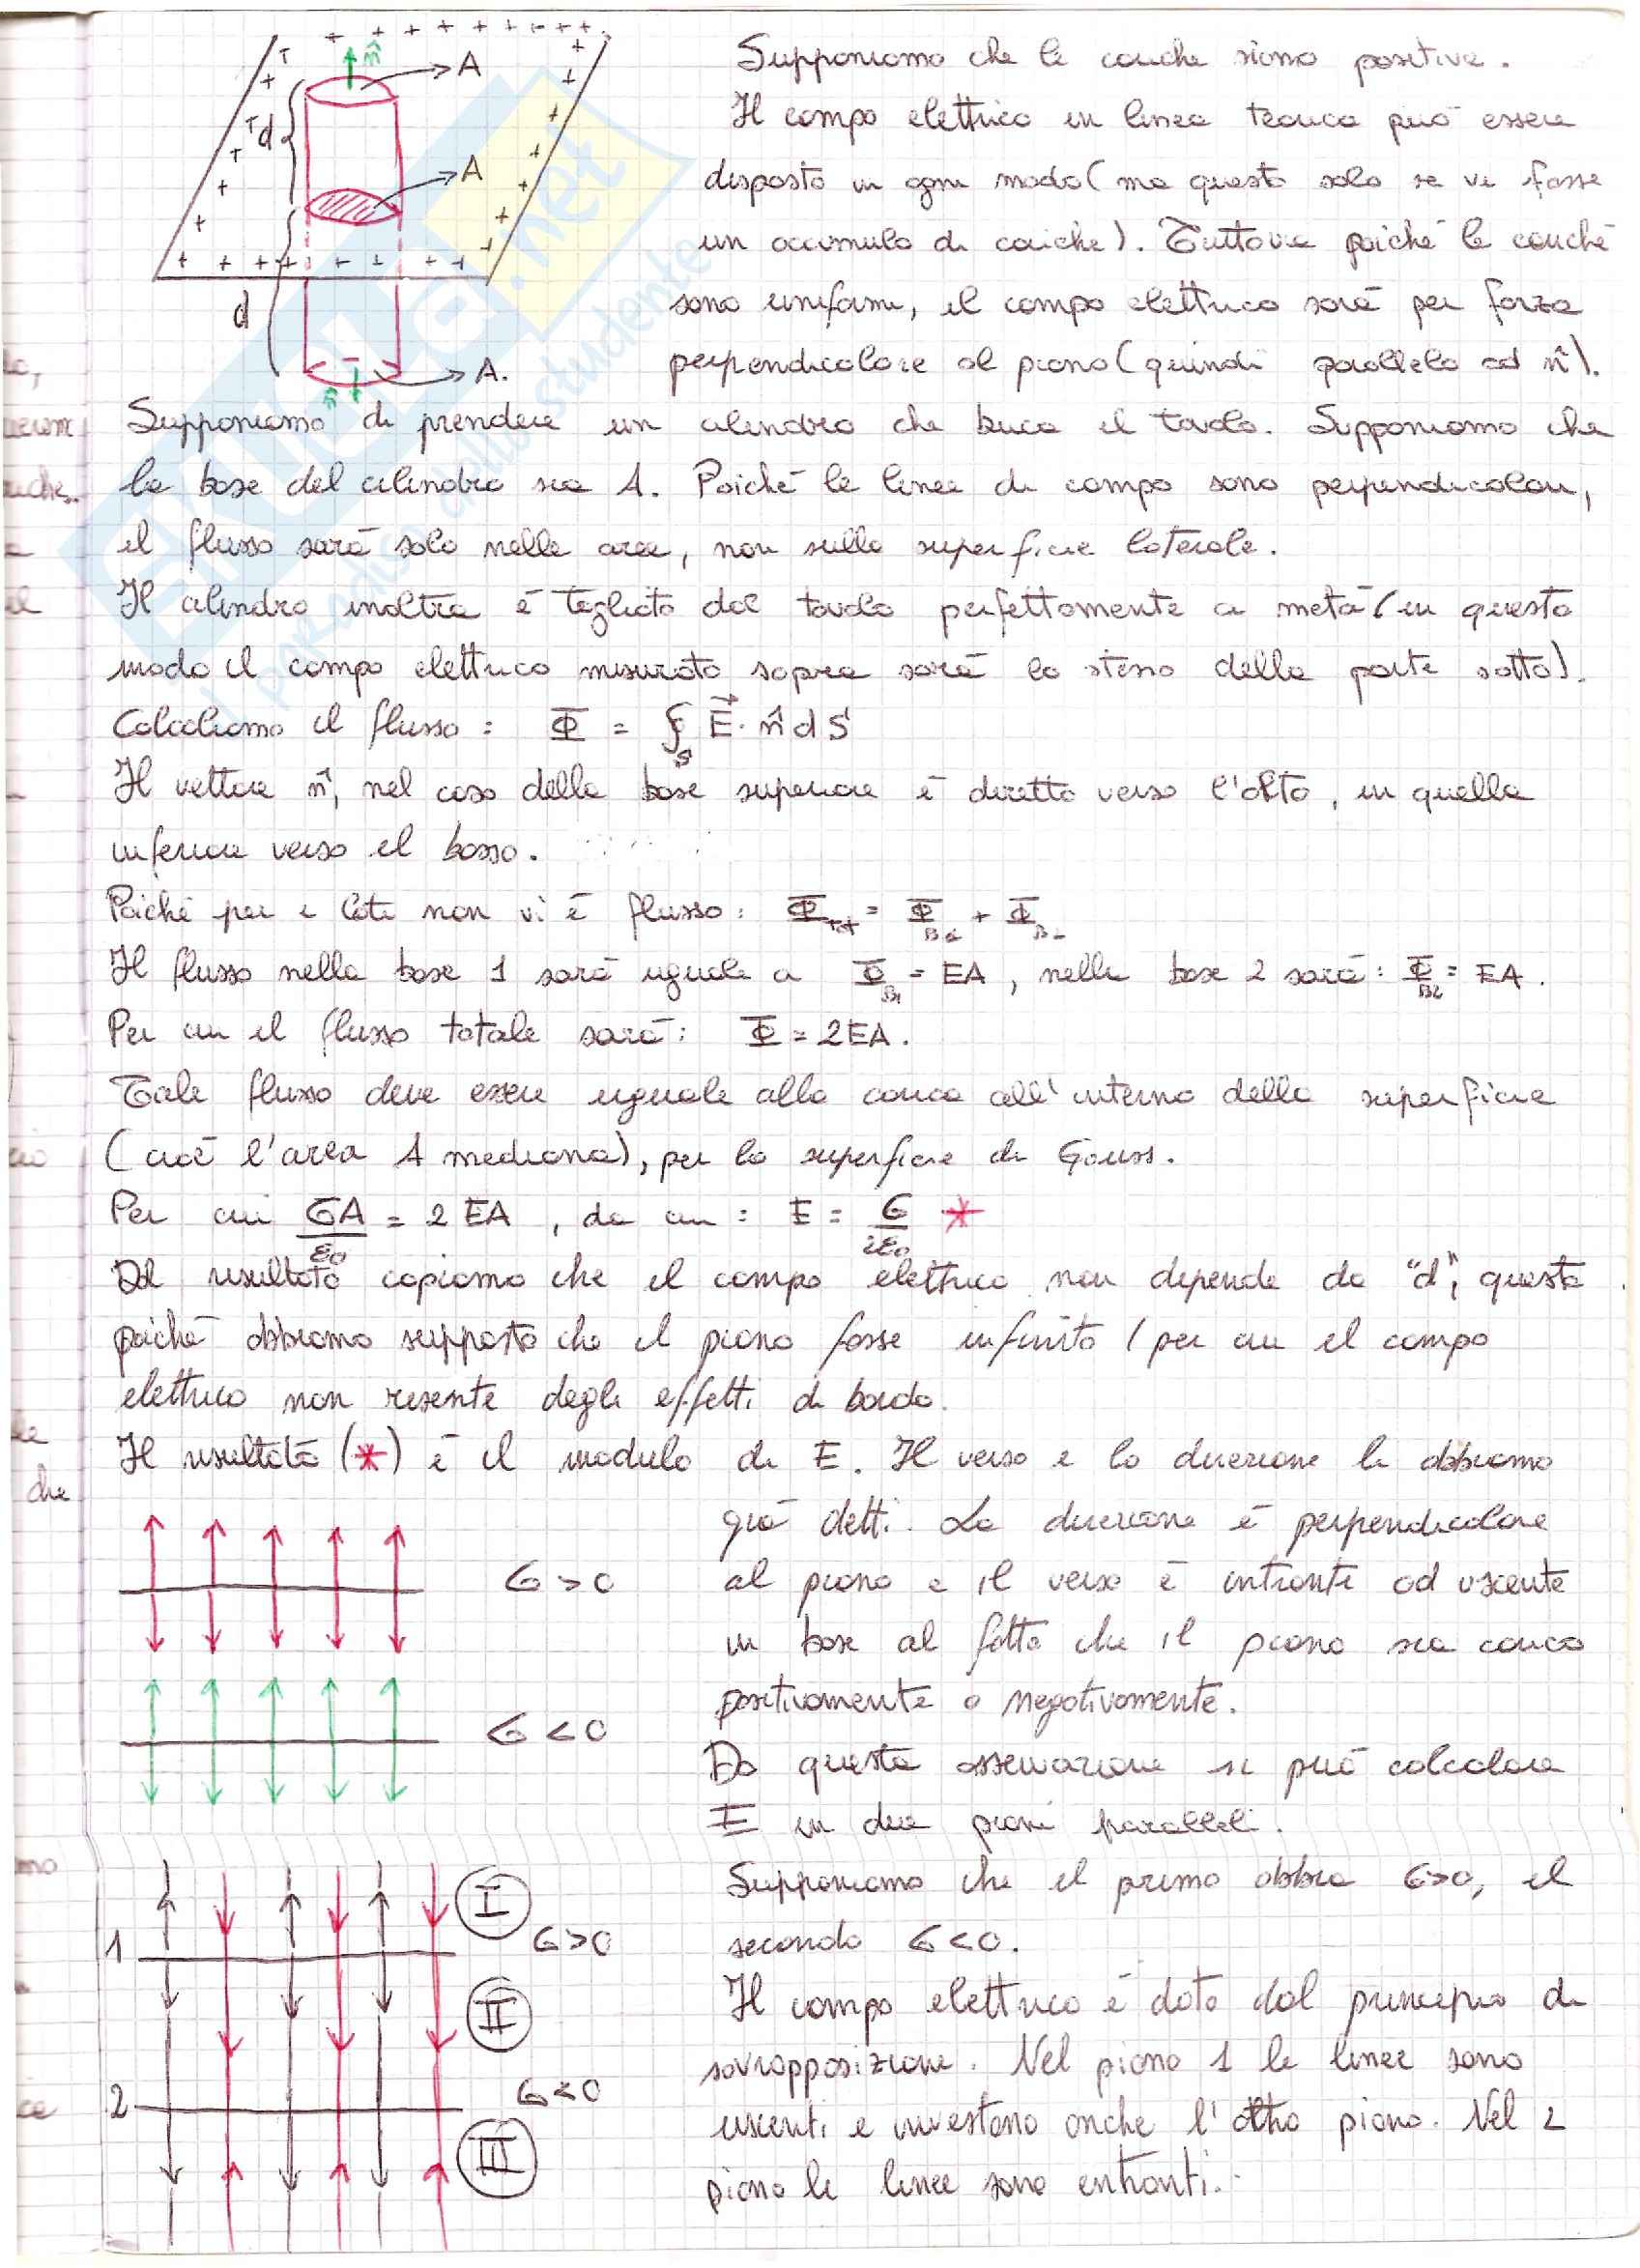 Supponiamo che le cariche siano positive.
Il campo elettrico in linea teorica può essere
disposto in ogni modo (ma questo solo se vi fosse
un accumulo di cariche). Tuttavia poiché le cariche
sono uniformi, il campo elettrico sarà per forza
perpendicolare al piano (quindi parallelo ad n̂).
Supponiamo di prendere un cilindro che buca il tavolo. Supponiamo che
la base del cilindro sia A. Poiché le linee di campo sono perpendicolari,
il flusso sarà solo nelle aree, non sulla superficie laterale.
Il cilindro inoltre è tagliato dal tavolo perfettamente a metà (in questo
modo il campo elettrico misurato sopra sarà lo stesso della parte sotto).
Calcoliamo il flusso: Φ = ∮_S E⃗ · n̂ dS
Il vettore n̂, nel caso della base superiore è diretto verso l'alto, in quella
inferiore verso il basso.
Poiché per i lati non vi è flusso: Φ_tot = Φ + Φ
Il flusso nella base 1 sarà uguale a Φ_B1 = EA, nella base 2 sarà: Φ_B2 = EA.
Per cui il flusso totale sarà: Φ = 2EA.
Tale flusso deve essere uguale alla carica all'interno della superficie
(cioè l'area A mediana), per la superficie di Gauss.
Per cui σA/ε₀ = 2EA, da cui: E = σ/2ε₀ *
Dal risultato capiamo che il campo elettrico non dipende da "d", questo
poiché abbiamo supposto che il piano fosse infinito (per cui il campo
elettrico non risente degli effetti di bordo.
Il risultato (*) è il modulo di E. Il verso e la direzione li abbiamo
già detti. La direzione è perpendicolare
al piano e il verso è entrante od uscente
in base al fatto che il piano sia carico
positivamente o negativamente.
Da questa osservazione si può calcolare
E in due piani paralleli.
Supponiamo che il primo abbia σ>0, il
secondo σ<0.
Il campo elettrico è dato dal principio di
sovrapposizione. Nel piano 1 le linee sono
uscenti e investono anche l'altro piano. Nel 2
piano le linee sono entranti.
n̂
A
d
A
d
A.
n̂
σ > 0
σ < 0
I
1
σ>0
II
2
σ<0
III
SKUOLA.net